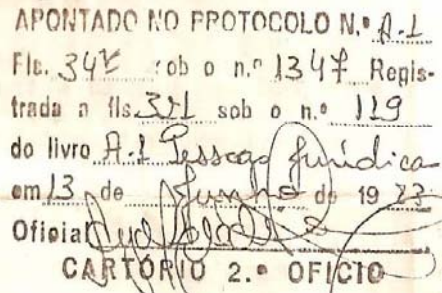 APONTADO NO PROTOCOLO N.º A-1
Fls. 34v sob o n.º 1347 Regis-
trada a fls. 321 sob o n.º 119
do livro A-1 Pessoas Jurídica
em 13 de Junho de 19 73
Oficial
CARTÓRIO 2.º OFICIO